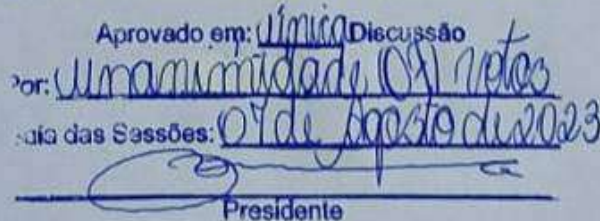 Aprovado em: Única Discussão
Por: Unanimidade votos
Sala das Sessões: 07 de Agosto de 2023
Presidente